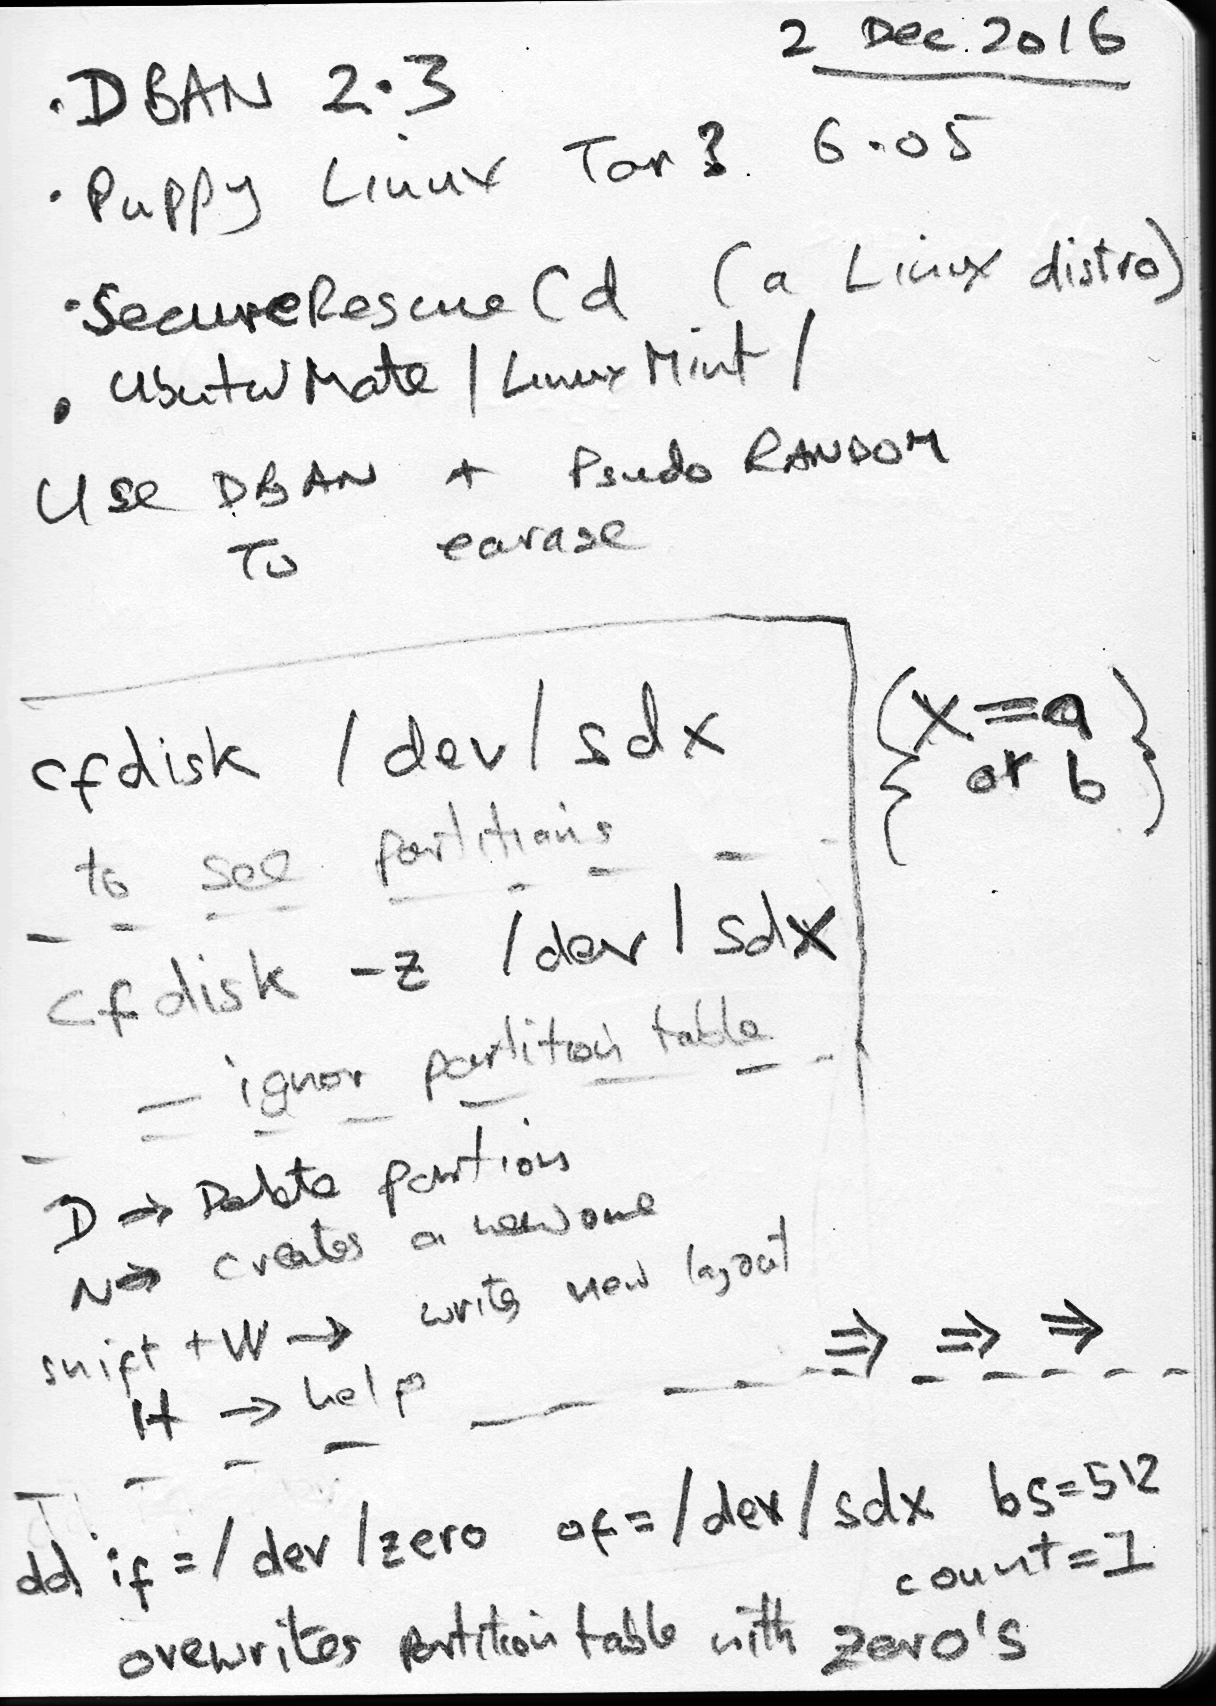 2 Dec. 2016
· DBAN 2.3
· Puppy Linux Tar 6.05
· SecureRescueCd (a Linux distro)
· UbutuMate / Linux Mint /
Use DBAN + Psudo RANDOM
To earase
cfdisk /dev/sdx
{x=a or b}
to see partitions
cfdisk -z /dev/sdx
ignor partition table
D → Delete partions
N → creates a new one
shift + W → writes new layout
⇒ ⇒ ⇒
H → help
dd if=/dev/zero of=/dev/sdx bs=512
count=1
ovewrites partition table with zero's